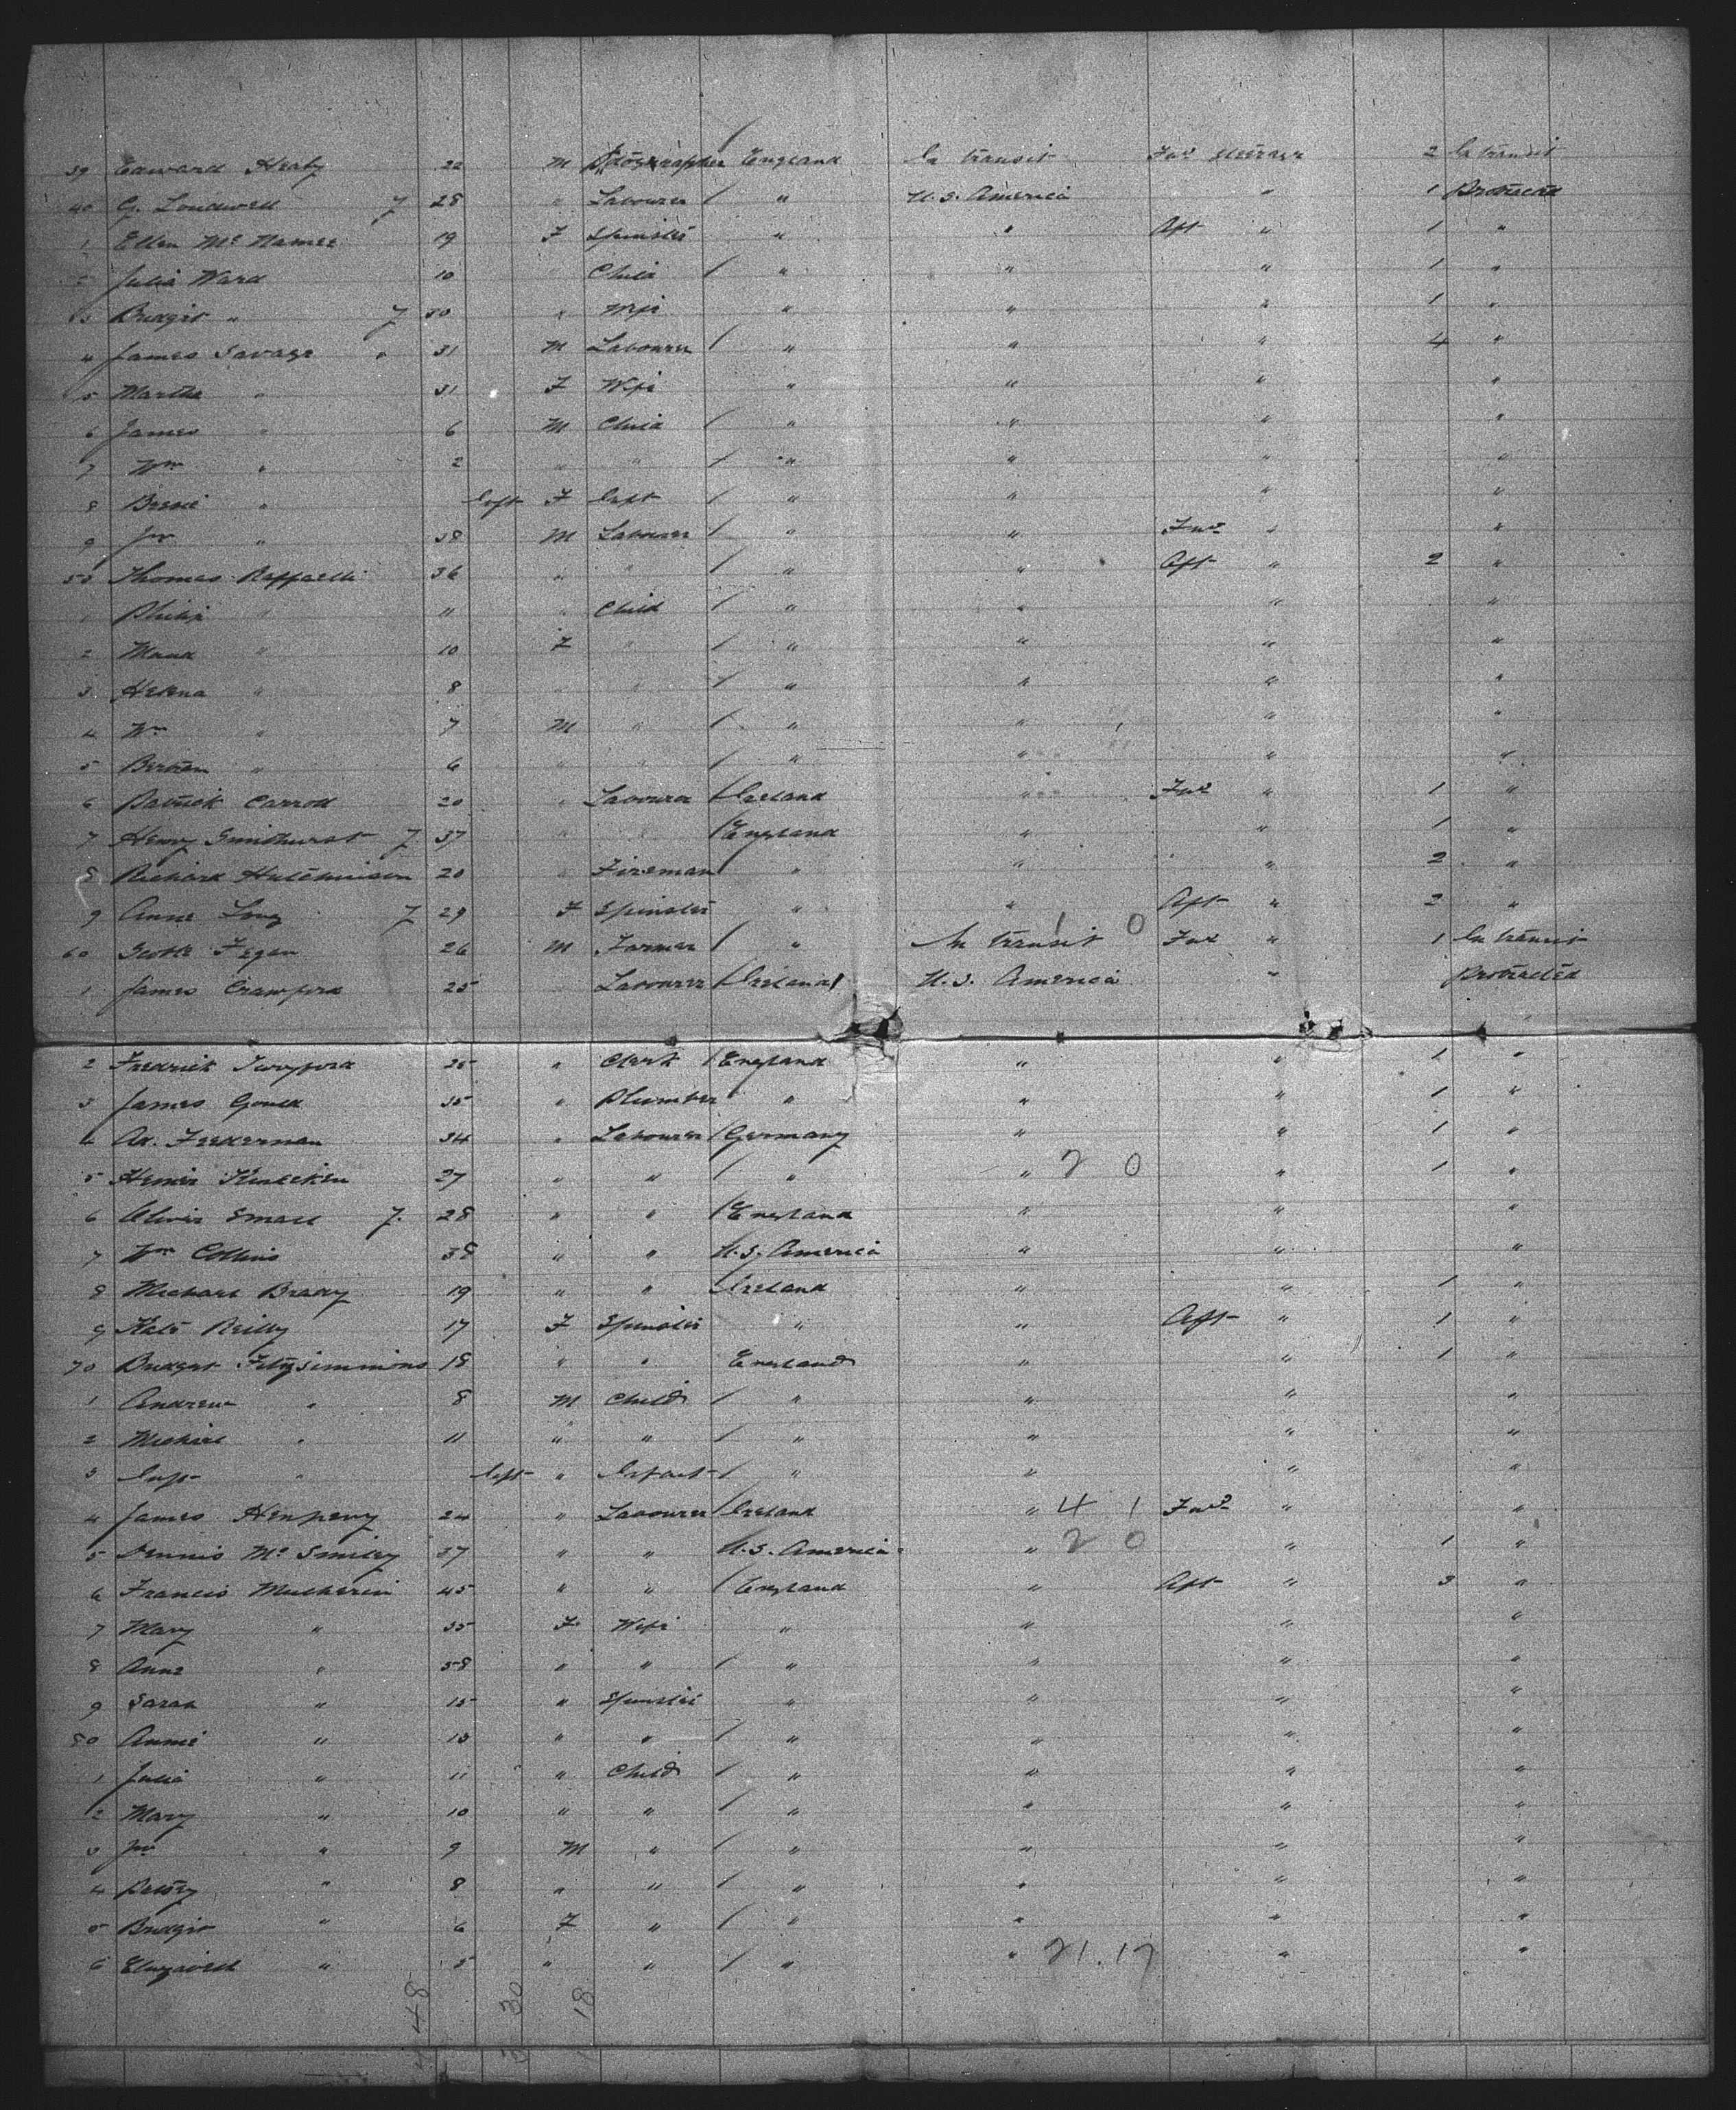 39 Edward Healy 22 M Photographer England In transit Fwd steerage 2 In transit
40 G. Loudwell 7 28 " Labourer / " U.S. America " 1 Protracted
1 Ellen Mc Namee 19 F Spinster " " Aft " 1 "
2 Julia Ward 10 " Child / " " " 1 "
3 Bridget " 7 50 " Wife " " " 1 "
4 James Savage " 31 M Labourer / " " " 4 "
5 Martha " 31 F Wife " " " "
6 James " 6 M Child / " " " "
7 Wm " 2 " " / " " " "
8 " Inft F Inft / " " " "
9 Jno " 38 M Labourer / " " Fwd " "
50 Thomas Raffaelli 36 " " / " " Aft " 2 "
1 Philip " 11 " Child / " " " "
2 Maud " 10 F " / " " " "
3 Helena " 8 " " / " " " "
4 Wm " 7 M " / " " " "
5 " 6 " " / " " " "
6 Patrick Carroll 20 " Labourer / Ireland " Fwd " 1 "
7 Henry Smidhurst 7 37 " " / England " " 1 "
8 Richard Hutchinson 20 " Fireman " " " 2 "
9 Anne Long 7 29 F Spinster " " Aft " 2 "
1 0
60 Fegan 26 M Farmer / " In transit Fwd " 1 In transit
1 James Crawford 25 Labourer / Ireland U.S. America " Protracted
2 Fredrick Twyford 25 " Clerk / England " " 1 "
3 James Gould 35 " Plumber " " " 1 "
4 Ad. Federman 34 " Labourer / Germany " " 1 "
5 27 " " / " " 2 0 " 1 "
6 Small 7. 28 " " / England " " "
7 Wm Collins 38 " " U.S. America " " "
8 Michael Brady 19 " " Ireland " " 1 "
9 Kate Reilly 17 F Spinster " " Aft " 1 "
70 Bridget Fitzsimmons 18 " " England " " 1 "
1 Andrew " 8 M Child / " " " "
2 Michael " 11 " " / " " " "
3 Inft " Inft " Infant / " " " "
4 James Henpery 24 " Labourer / Ireland " 4 1 Fwd " "
5 Dennis Mc Smiley 37 " " U.S. America " 2 0 " 1 "
6 Francis Mulherin 45 " " / England " Aft " 3 "
7 Mary " 35 F Wife " " " "
8 Anne " 58 " " / " " " "
9 Sarah " 15 " Spinster " " " "
80 Annie " 13 " " / " " " "
1 Julia " 11 " Child / " " " "
2 Mary " 10 " " / " " " "
3 Jno " 9 M " / " " " "
4 " 8 " " / " " " "
5 Bridget " 6 F " / " " " "
6 Elizabeth " 5 " " / " " 21.17 " "
48 30 18